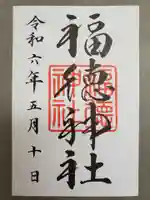 福徳神社
令和六年五月十日
福徳
神社